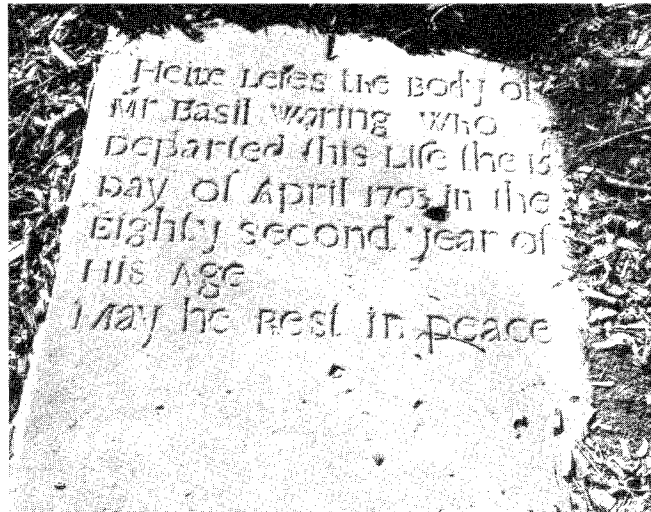 Here Leies the Body of
Mr Basil Waring Who
Departed this Life the 18
Day of April 1793 in the
Eighty second year of
His Age
May he Rest in peace